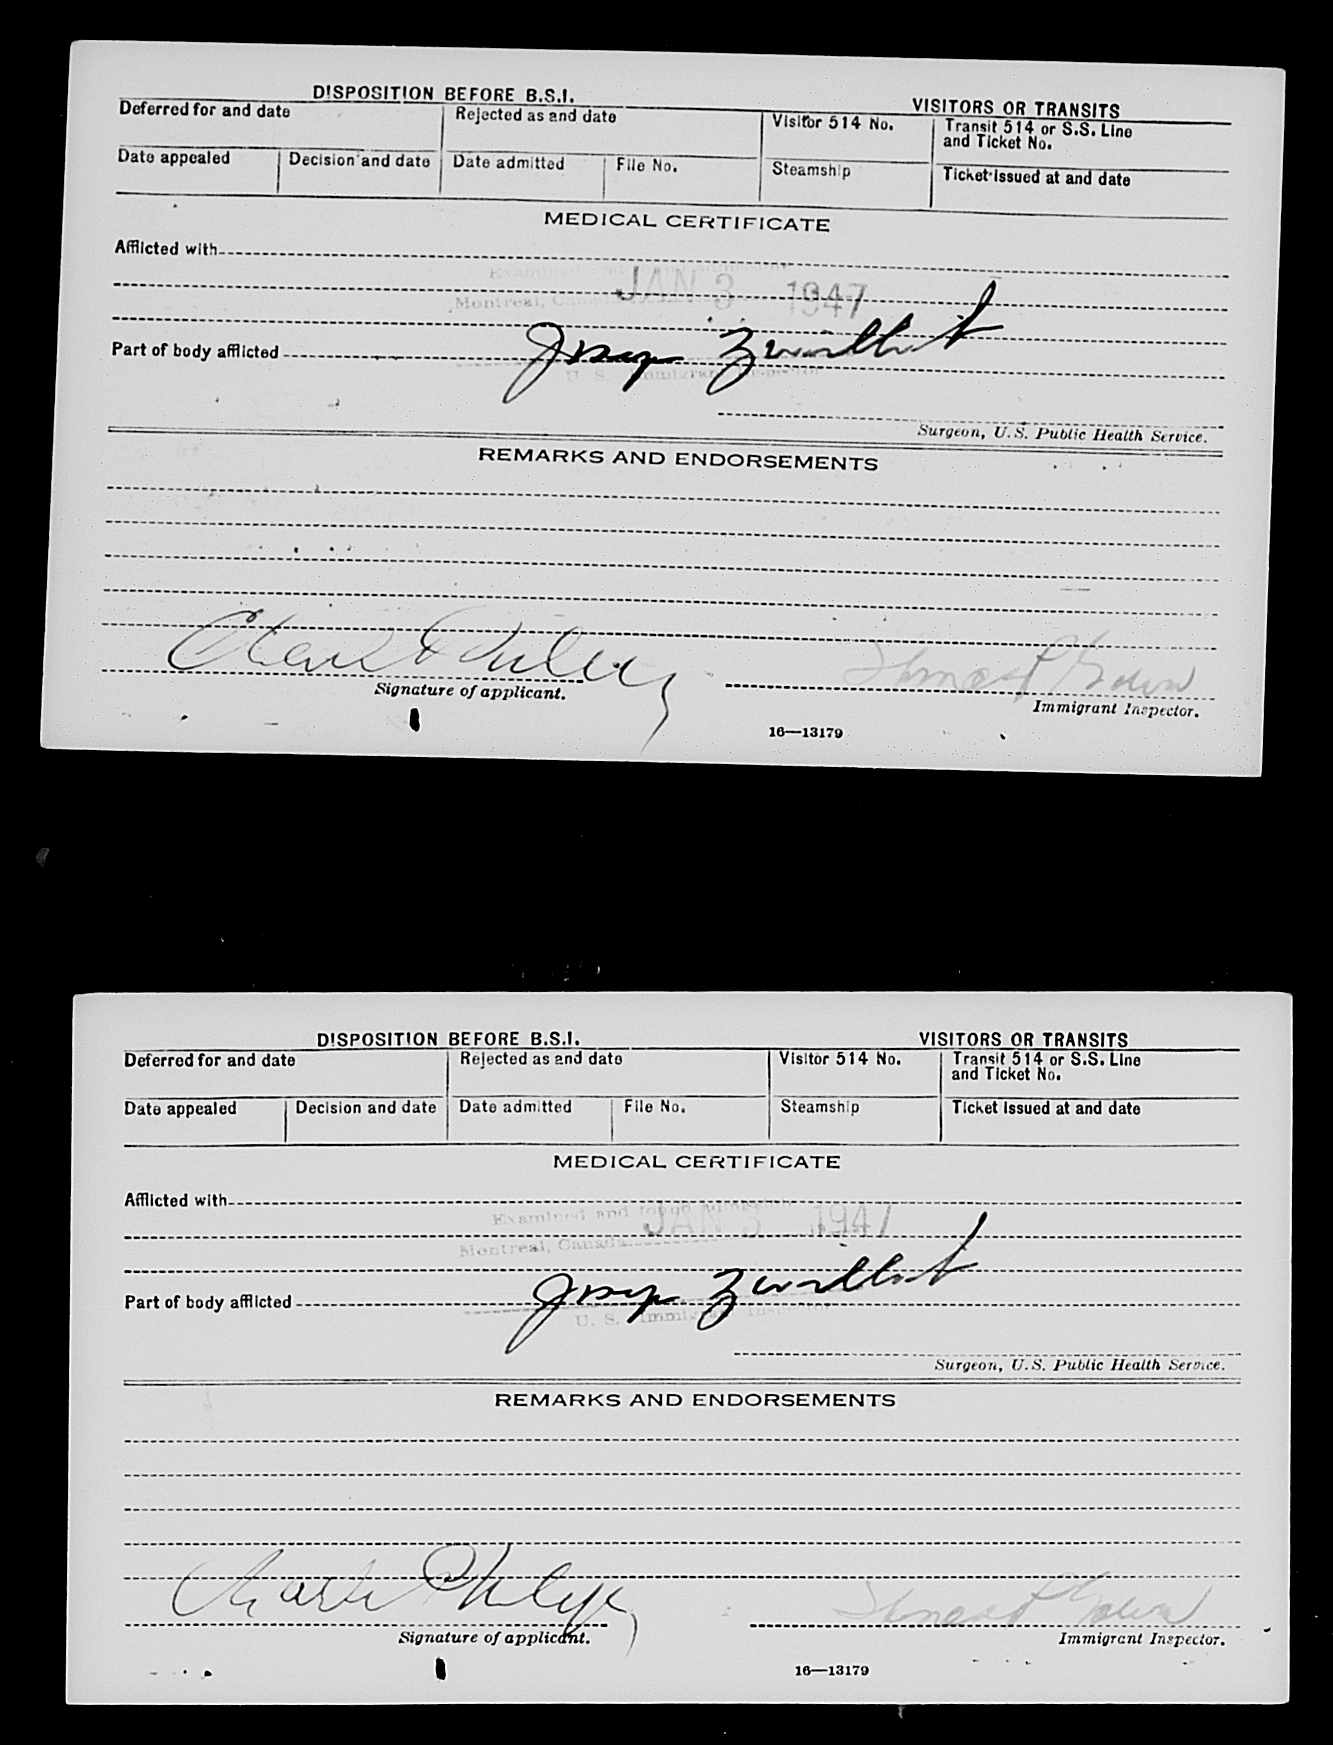 DISPOSITION BEFORE B.S.I. VISITORS OR TRANSITS
Deferred for and date Rejected as and date Visitor 514 No. Transit 514 or S.S. Line and Ticket No.
Date appealed Decision and date Date admitted File No. Steamship Ticket issued at and date
MEDICAL CERTIFICATE
Afflicted with
JAN 3 1947
Montreal, Canada
Part of body afflicted
U. S. Immigrant Inspector
Surgeon, U.S. Public Health Service.
REMARKS AND ENDORSEMENTS
Signature of applicant. Immigrant Inspector.
16—13179
DISPOSITION BEFORE B.S.I. VISITORS OR TRANSITS
Deferred for and date Rejected as and date Visitor 514 No. Transit 514 or S.S. Line and Ticket No.
Date appealed Decision and date Date admitted File No. Steamship Ticket issued at and date
MEDICAL CERTIFICATE
Afflicted with
Examined and
JAN 3 1947
Montreal, Canada
Part of body afflicted
U. S. Immigrant Inspector
Surgeon, U.S. Public Health Service.
REMARKS AND ENDORSEMENTS
Signature of applicant. Immigrant Inspector.
16—13179